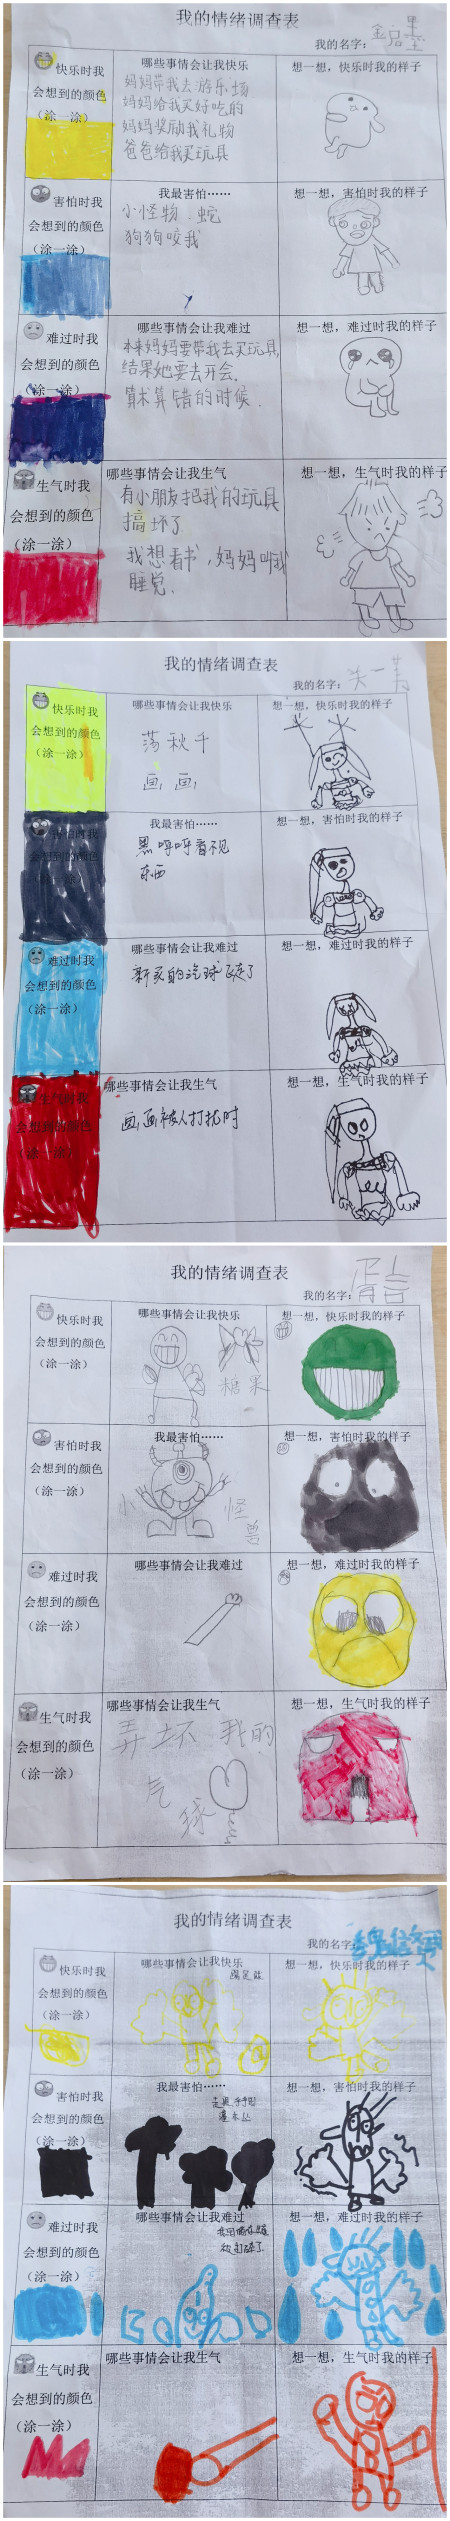 我的情绪调查表
我的名字：
快乐时我
会想到的颜色
（涂一涂）
哪些事情会让我快乐
妈妈带我去游乐场
妈妈给我买好吃的
妈妈奖励我礼物
爸爸给我买玩具
想一想，快乐时我的样子
害怕时我
会想到的颜色
（涂一涂）
我最害怕……
小怪物、蛇
狗狗咬我
想一想，害怕时我的样子
难过时我
会想到的颜色
（涂一涂）
哪些事情会让我难过
本来妈妈要带我去买玩具，
结果她要去开会.
算术算错的时候.
想一想，难过时我的样子
生气时我
会想到的颜色
（涂一涂）
哪些事情会让我生气
有小朋友把我的玩具
搞坏了
我想看书，妈妈叫我
睡觉.
想一想，生气时我的样子
我的情绪调查表
我的名字：
快乐时我
会想到的颜色
（涂一涂）
哪些事情会让我快乐
荡秋千
画画
想一想，快乐时我的样子
害怕时我
会想到的颜色
（涂一涂）
我最害怕……
黑呼呼看不见
东西
想一想，害怕时我的样子
难过时我
会想到的颜色
（涂一涂）
哪些事情会让我难过
新买的汽球飞走了
想一想，难过时我的样子
生气时我
会想到的颜色
（涂一涂）
哪些事情会让我生气
画画被人打扰时
想一想，生气时我的样子
我的情绪调查表
我的名字：
快乐时我
会想到的颜色
（涂一涂）
哪些事情会让我快乐
糖果
想一想，快乐时我的样子
害怕时我
会想到的颜色
（涂一涂）
我最害怕……
小怪兽
想一想，害怕时我的样子
难过时我
会想到的颜色
（涂一涂）
哪些事情会让我难过
想一想，难过时我的样子
生气时我
会想到的颜色
（涂一涂）
哪些事情会让我生气
弄坏我的
气球
想一想，生气时我的样子
我的情绪调查表
我的名字：
快乐时我
会想到的颜色
（涂一涂）
哪些事情会让我快乐
踢足球
想一想，快乐时我的样子
害怕时我
会想到的颜色
（涂一涂）
我最害怕……
想一想，害怕时我的样子
难过时我
会想到的颜色
（涂一涂）
哪些事情会让我难过
被打碎了
想一想，难过时我的样子
生气时我
会想到的颜色
（涂一涂）
哪些事情会让我生气
想一想，生气时我的样子